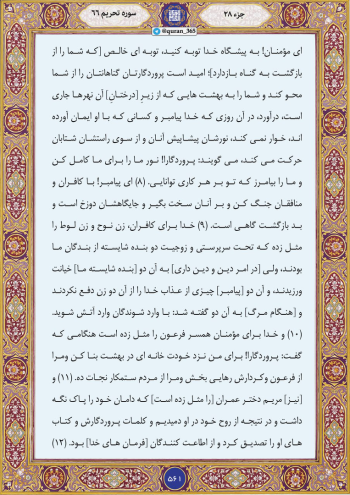 جزء ۲۸
سوره تحریم ۶۶
@quran_365
ای مؤمنان! به پیشگاه خدا توبه کنید، توبه ای خالص [که شما را از
بازگشت به گناه بازدارد]؛ امید است پروردگارتان گناهانتان را از شما
محو کند و شما را به بهشت هایی که از زیرِ [درختانِ] آن نهرها جاری
است، درآورد، در آن روزی که خدا پیامبر و کسانی که با او ایمان آورده
اند، خوار نمی کند، نورشان پیشاپیش آنان و از سوی راستشان شتابان
حرکت می کند، می گویند: پروردگارا! نور ما را برای ما کامل کن
و ما را بیامرز که تو بر هر کاری توانایی. (۸) ای پیامبر! با کافران و
منافقان جنگ کن و بر آنان سخت بگیر و جایگاهشان دوزخ است و
بد بازگشت گاهی است. (۹) خدا برای کافران، زن نوح و زن لوط را
مثل زده که تحت سرپرستی و زوجیت دو بنده شایسته از بندگان ما
بودند، ولی [در امر دین و دین داری] به آن دو [بنده شایسته ما] خیانت
ورزیدند، و آن دو [پیامبر] چیزی از عذاب خدا را از آن دو زن دفع نکردند
و [هنگام مرگ] به آن دو گفته شد: با وارد شوندگان وارد آتش شوید.
(۱۰) و خدا برای مؤمنان همسر فرعون را مثل زده است هنگامی که
گفت: پروردگارا! برای من نزد خودت خانه ای در بهشت بنا کن ومرا
از فرعون وکردارش رهایی بخش ومرا از مردم ستمکار نجات ده. (۱۱) و
[نیز] مریم دختر عمران [را مثل زده است] که دامان خود را پاک نگه
داشت و در نتیجه از روح خود در او دمیدیم و کلمات پروردگارش و کتاب
های او را تصدیق کرد و از اطاعت کنندگان [فرمان های خدا] بود. (۱۲)
۵۶۱